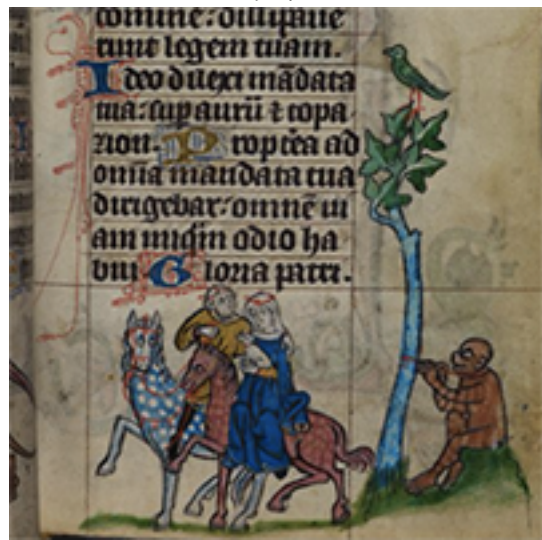 domine: dissipaue
runt legem tuam.
Ideo dilexi mādata
tua: sup aurū ⁊ topa
zion. Propt̄ea ad
om̄ia mandata tua
dirigebar: omnē ui
am
odio ha
bui Gloria patri.